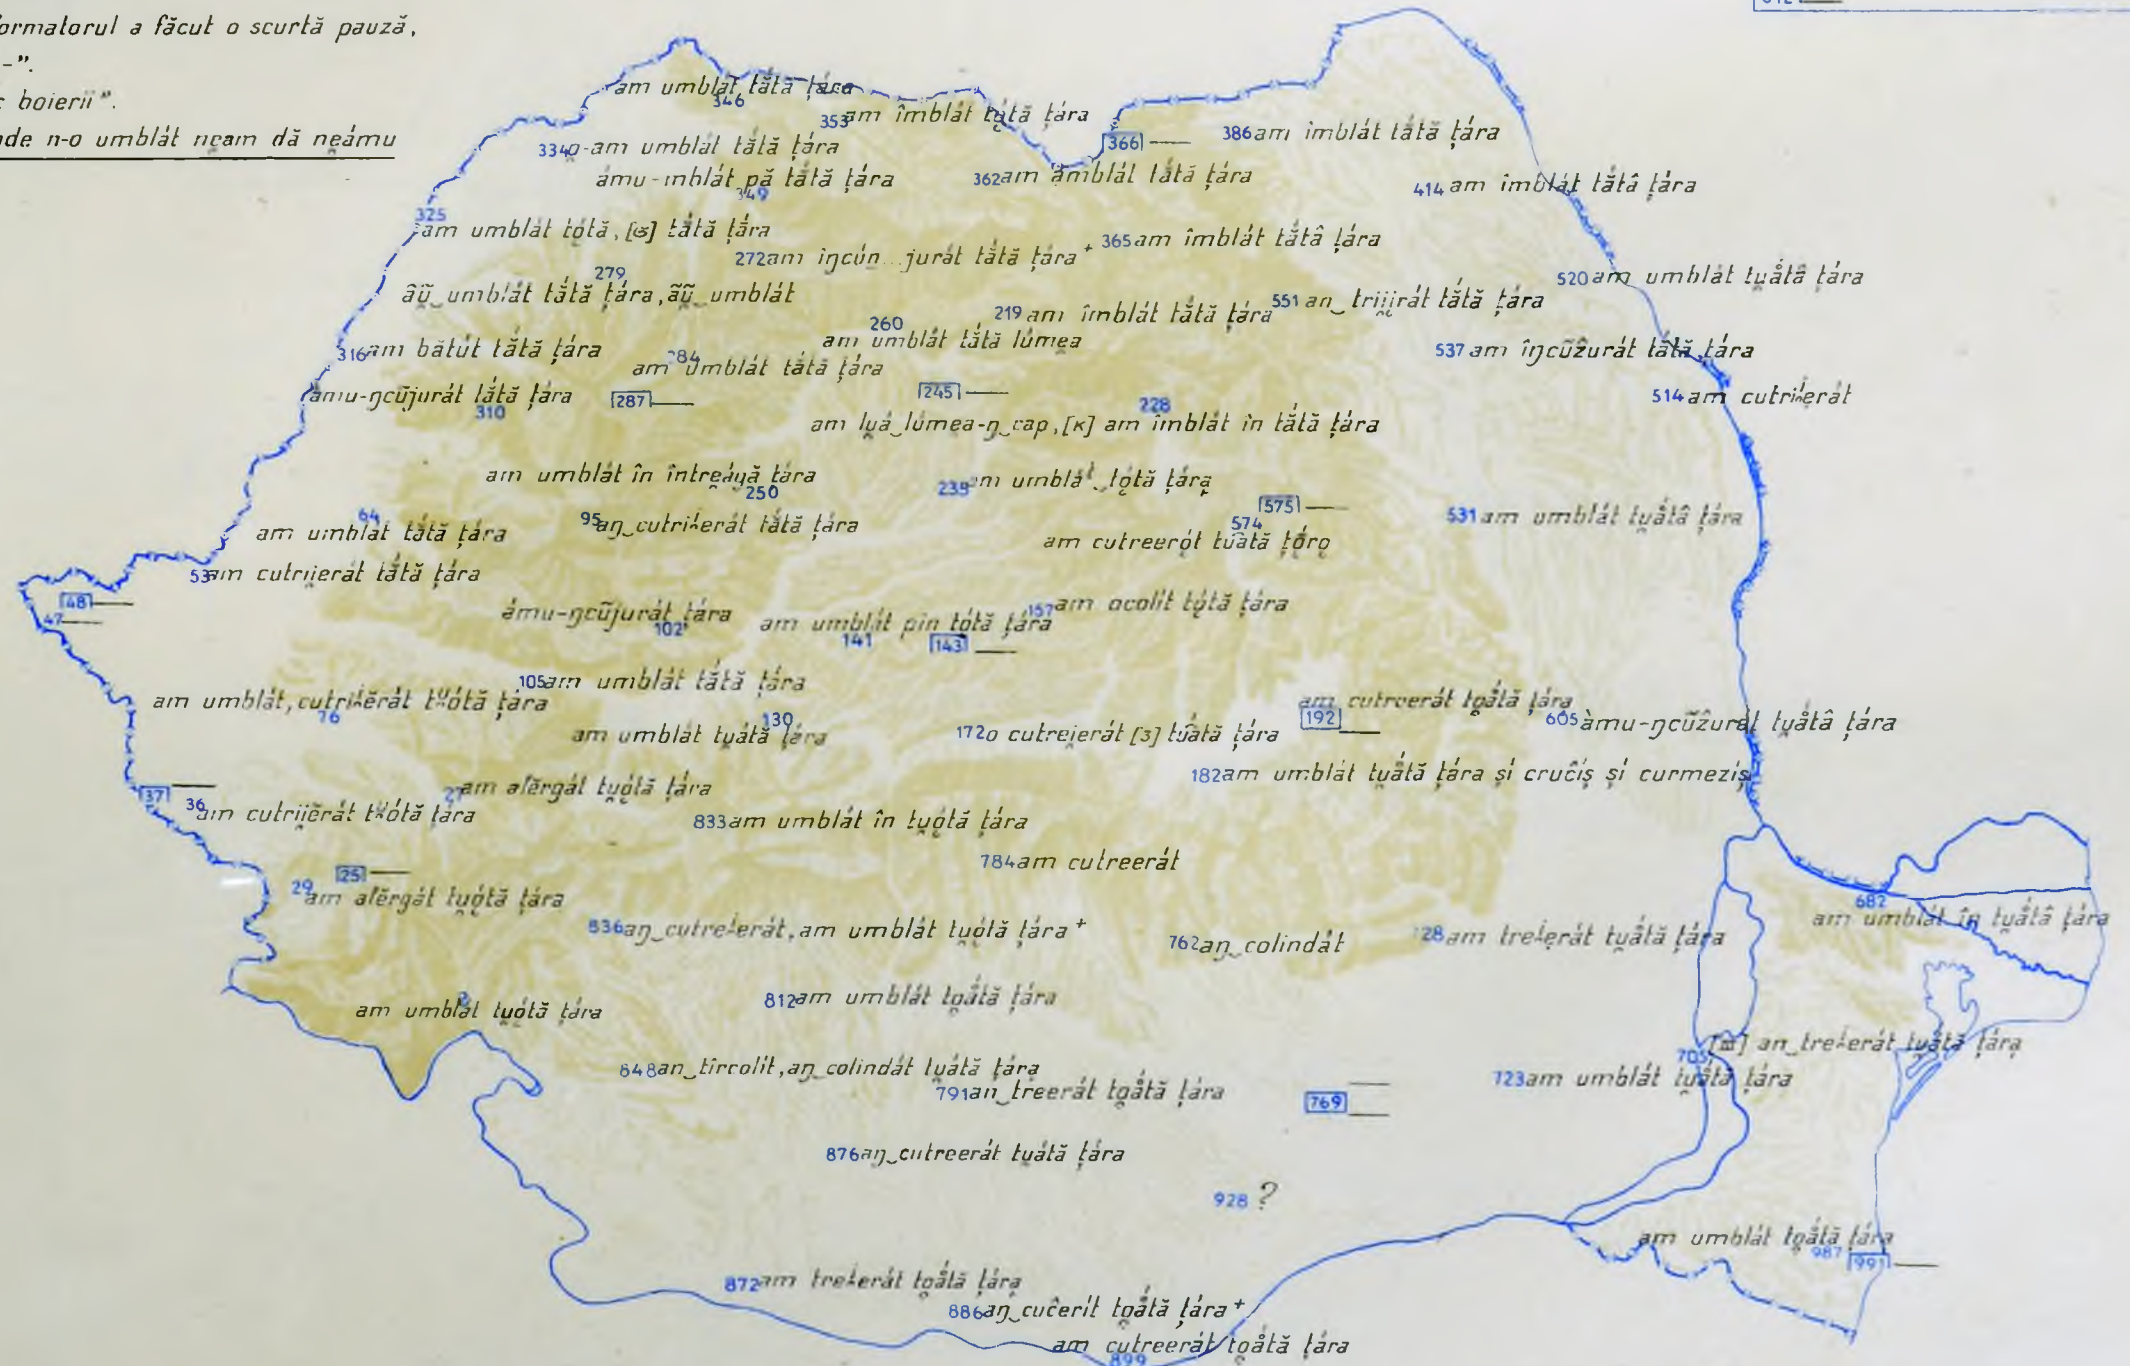 formatorul a făcut o scurtă pauză,
-”.
boierii”.
nde n-o umblát nęam dă neámu
am umblát tắtă ţára
346
353 am îmblát tǫ́tă ţára
366
386 am îmblát tắtă ţára
334 o-am umblát tắtă ţára
ámu-mblát pă tắtă ţára
349
362 am ămblát tắtă ţára
414 am îmblát tắtâ ţára
325
am umblát tǫ́tă, tắtă ţára
272 am iŋcún...jurát tắtă ţára+
365 am îmblát tắtâ ţára
279
ãũ‿umblát tắtă ţára, ãũ‿umblát
520 am umblát tu̯ắtâ ţára
219 am îmblát tắtă ţára
551 an‿trii̯irát tắtă ţára
260
am umblát tắtă lúmea
316 am bătút tắtă ţára
284
am umblát tắtă ţára
537 am îŋcũžurát tắtă ţára
ámu-ŋcũjurát tắtă ţára
310
287
245
514 am cutriĭerát
228
am lu̯á‿lúmea-ŋ‿cap, [к] am îmblát în tắtă ţára
am umblát în întreágă ţára
250
235 am umblát‿tǫ́tă ţára
575
64
am umblát tắtă ţára
95 aŋ‿cutriĭerát tắtă ţára
574
am cutreerǫ́t tu̯átă ţǫ́rǫ
531 am umblát tu̯ắtâ ţára
53 am cutrii̯erát tắtă ţára
48
47
ámu-ŋcũjurát ţára
102
am umblát pin tótă ţára
141
157 am ocolít tǫ́tă ţára
143
105 am umblát tắtă ţára
am umblát, cutriĭĕrát tᵘótă ţára
76
am umblát tu̯átă ţára
130
172 o cutrei̯erát [з] tu̯átă ţára
am cutreerát to̯átă ţára
192
605 àmu-ŋcũžurát tu̯ắtâ ţára
182 am umblát tu̯átă ţára şi crucîş şi curmeziş
37
36 am cutrii̯ĕrát tᵘótă ţára
27 am alĕrgát tu̯ǫ́tă ţára
833 am umblát în tu̯ǫ́tă ţára
784 am cutreerát
25
29 am alĕrgát tu̯ǫ́tă ţára
836 aŋ‿cutreĭerát, am umblát tu̯ǫ́tă ţára+
762 aŋ‿colindát
728 am treĭerát tu̯átă ţára
682
am umblát în tu̯ắtâ ţára
2
am umblát tu̯ǫ́tă ţára
812 am umblát to̯átă ţára
705 an‿treĭerát tu̯átă ţára
848 an‿tîrcolít, aŋ‿colindát tu̯átă ţára
791 an‿treerát to̯átă ţára
769
723 am umblát tu̯átă ţára
876 aŋ‿cutreerát tu̯átă ţára
928 ?
am umblát to̯átă ţára
987
991
872 am treĭerát to̯átă ţára
886 aŋ‿cucerít to̯átă ţára+
am cutreerát to̯átă ţára
899